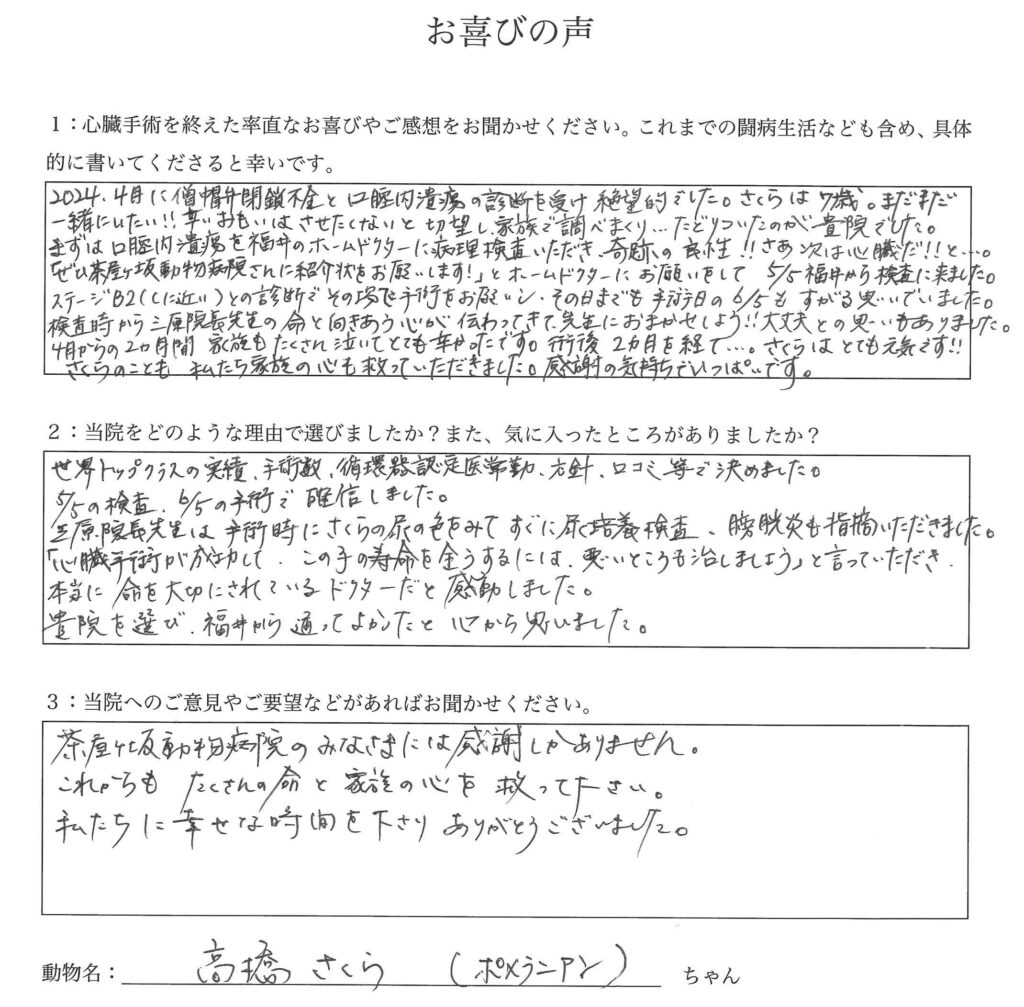 お喜びの声
1：心臓手術を終えた率直なお喜びやご感想をお聞かせください。これまでの闘病生活なども含め、具体
的に書いてくださると幸いです。
2024.4月に僧帽弁閉鎖不全と口腔内潰瘍の診断を受け絶望的でした。さくらは7歳。まだまだ
一緒にいたい!!辛いおもいはさせたくないと切望し、家族で調べまくり…たどりついたのが貴院でした。
まずは口腔内潰瘍を福井のホームドクターに病理検査いただき、奇跡の良性!!さあ次は心臓だ!!と…。
「ぜひ茶屋ヶ坂動物病院さんに紹介状をお願いします!」とホームドクターにお願いをして 5/5福井から検査に来ました。
ステージB2(Cに近い)との診断でその場で手術をお願いし、その日までも手術日の6/5もすがる思いでいました。
検査時から三原院長先生の命と向きあう心が伝わってきて、先生におまかせしよう!!大丈夫との思いもありました。
4月からの2カ月間 家族もたくさん泣いてとても辛かったです。術後2カ月を経て…。さくらはとても元気です!!
さくらのことも 私たち家族の心も救っていただきました。感謝の気持ちでいっぱいです。
2：当院をどのような理由で選びましたか？また、気に入ったところがありましたか？
世界トップクラスの実績、手術数、循環器認定医常勤、方針、口コミ等で決めました。
5/5の検査、6/5の手術で確信しました。
三原院長先生は手術時にさくらの尿の色をみてすぐに尿培養検査、膀胱炎も指摘いただきました。
「心臓手術が成功して、この子の寿命を全うするには、悪いところも治しましょう」と言っていただき、
本当に命を大切にされているドクターだと感動しました。
貴院を選び、福井から通ってよかったと心から思いました。
3：当院へのご意見やご要望などがあればお聞かせください。
茶屋ヶ坂動物病院のみなさまには感謝しかありません。
これからも たくさんの命と家族の心を救って下さい。
私たちに幸せな時間を下さり ありがとうございました。
動物名：高橋 さくら (ポメラニアン) ちゃん